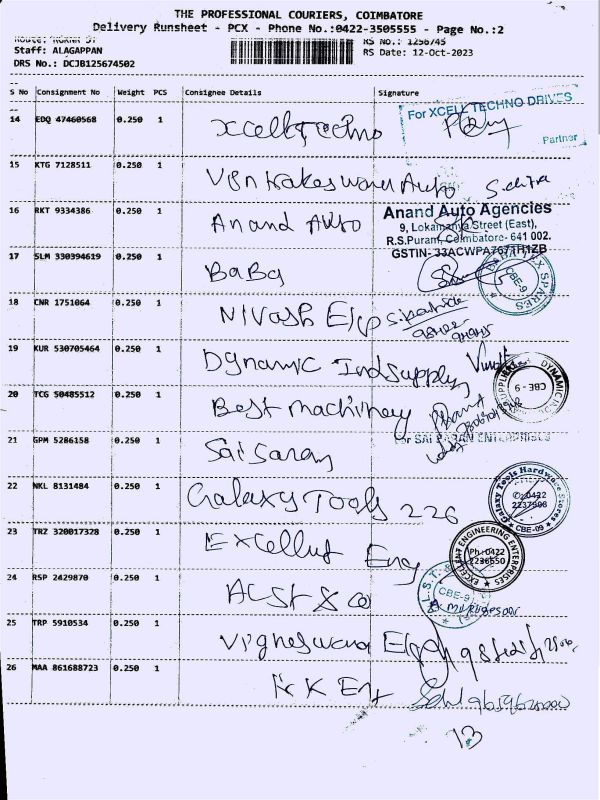 THE PROFESSIONAL COURIERS, COIMBATORE
Delivery Runsheet - PCX - Phone No.:0422-3505555 - Page No.:2
RS No.: 1256745
Staff: ALAGAPPAN
RS Date: 12-Oct-2023
DRS No.: DCJB125674502
S No Consignment No Weight PCS Consignee Details Signature
14 EDQ 47460568 0.250 1 Xcell Techno
For XCELL TECHNO DRIVES
Partner
15 KTG 7128511 0.250 1 Auto
16 RKT 9334386 0.250 1 Anand Auto
Anand Auto Agencies
9, Lokamanya Street (East),
R.S.Puram, Coimbatore- 641 002.
GSTIN- 33ACWPA7677H1ZB
17 SLM 330394619 0.250 1 Baba
SPARES
CBE-9
18 CNR 1751064 0.250 1 Nivash
19 KUR 530705464 0.250 1 Dynamic Ind supply
DYNAMIC
CBE - 9
20 TCG 50485512 0.250 1 Best machinery
21 GPM 5286158 0.250 1 Sai Saran
For SAI SARAN ENTERPRISES
22 NKL 8131484 0.250 1 Galaxy Tools 226
Galaxy Tools Hardware Stores
0422
2237996
CBE-09
23 TRZ 320017328 0.250 1 Excellent Eng
EXCELLENT ENGINEERING ENTERPRISES
Ph:0422
2236550
24 RSP 2429870 0.250 1 & Co
CBE-9
25 TRP 5910534 0.250 1 Vigneswara
26 MAA 861688723 0.250 1 K K Ent
13